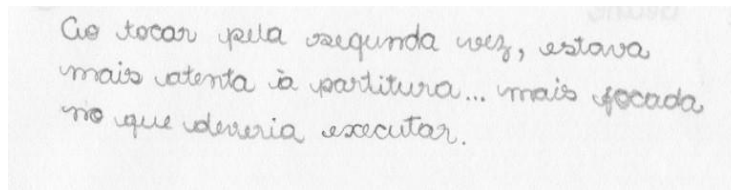 Ao tocar pela segunda vez, estava
mais atenta à partitura... mais focada
no que deveria executar.